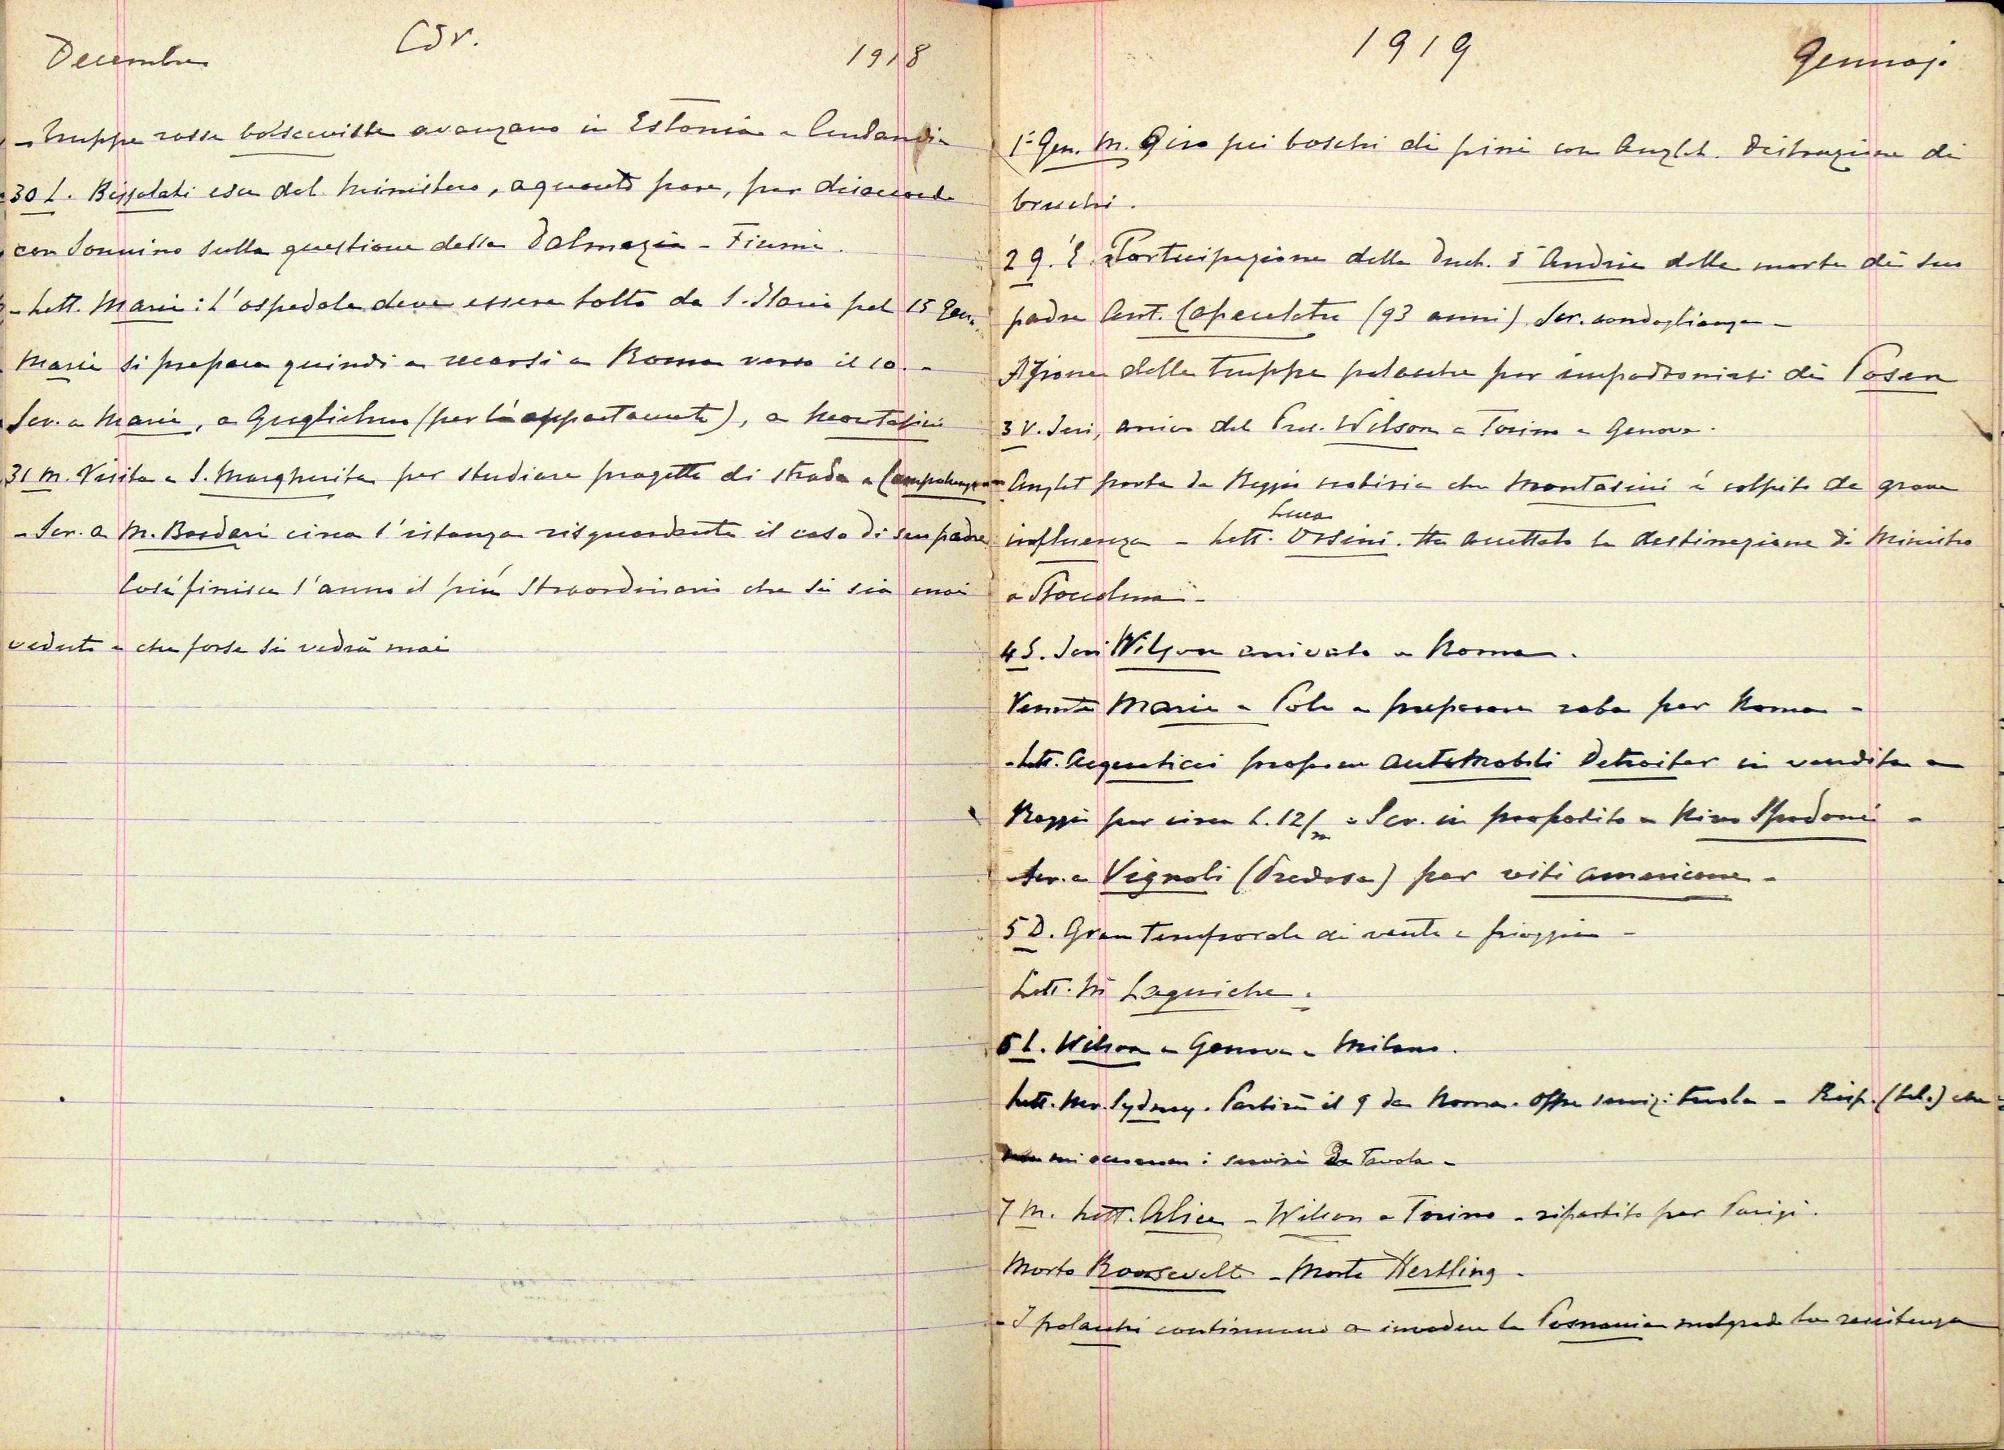 Decembre Cor. 1918
- Truppe rosse bolsceviste avanzano in Estonia e Curlandia
30 L. Bissolati esce dal Ministero, a quanto pare, per disaccordo
con Sonnino sulla questione della Dalmazia - Fiume.
- Lett. Maria: L'ospedale deve essere tolto da S. Ilario pel 15 Gen.
Maria si prepara quindi a recarsi a Roma verso il 10. -
Scr. a Maria, a Guglielmo (per l'appartamento), a Montasini
31 M. Visita a S. Margherita per studiare progetto di strada a Campolungo
- Scr. a M. Bordari circa l'istanza risguardante il caso di suo padre
Così finisce l'anno il più straordinario che si sia mai
veduto e che forse si vedrà mai
1919 Gennajo
1° Gen. M. Giro pei boschi di pini con Anglet. Distruzione di
bruchi.
2 G. È Participazione della Duch. d'Andria della morte di suo
padre Ant. Capecelatro (93 anni) Scr. condoglianze -
Azione delle truppe polacche per impadronirsi di Posen
3 V. Ieri, arrivo del Pres. Wilson a Torino e Genova.
- Anglet porta da Reggio notizia che Montasini è colpito da grave
influenza - Lett. Luca Orsini. Ha accettato la destinazione di Ministro
a Stoccolma -
4 S. Ieri Wilson arrivato a Roma.
Venuta Maria a preparare roba per Roma -
- Lett. Acquaticci propone automobili Detroiter in vendita a
Reggio per circa L. 12/m - Scr. in proposito a Nino Spadoni -
Scr. a Vignoli (Predosa) per viti americane -
5 D. Gran temporale di vento e pioggia -
Lett. Laguiche.
6 L. Wilson a Genova e Milano.
Lett. Sydney. Partirà il 9 da Roma. Offre servizi tavola - Risp. (tel.) che
non mi occorrono i servizi da tavola -
7 M. Lett. Alice - Wilson a Torino - ripartito per Parigi.
Morto Roosevelt - Morto Hertling -
- I polacchi continuano a invadere la Posnania malgrado la resistenza